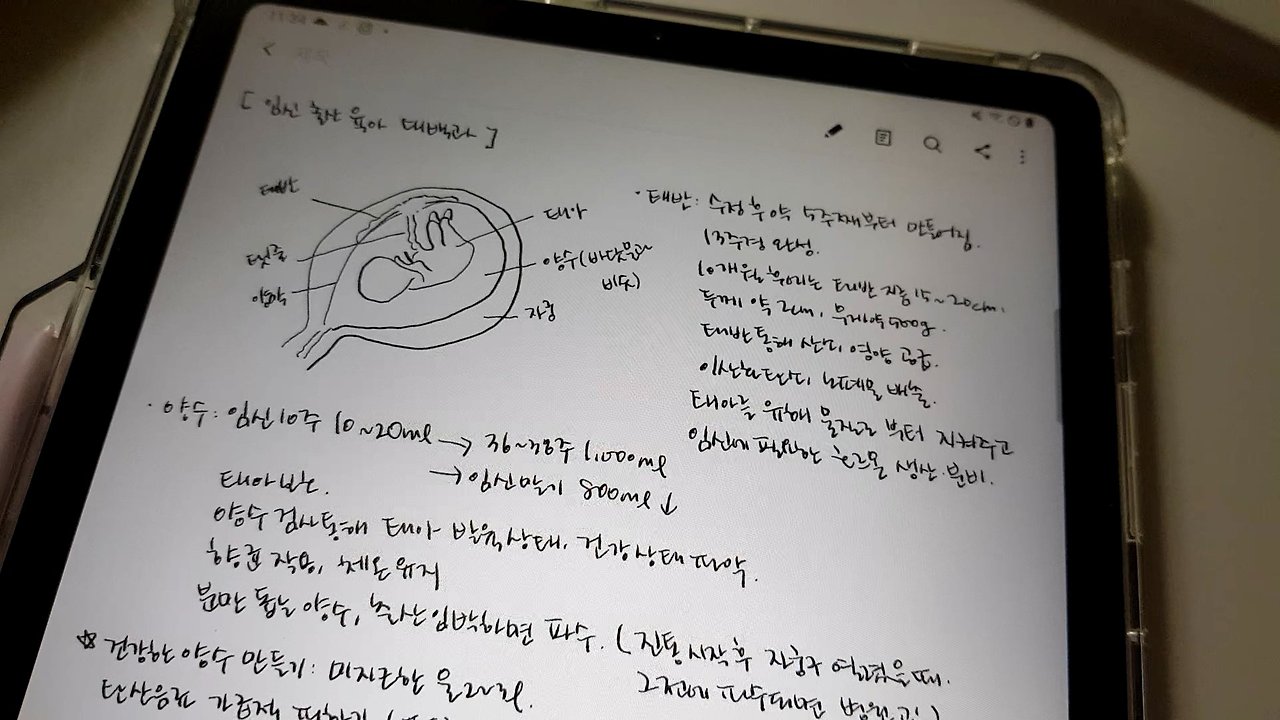 11:39
[ 임신 출산 육아 대백과 ]
태반
탯줄
양막
태아
양수(바닷물과
비슷)
자궁
· 태반: 수정 후 약 5주째부터 만들어짐.
13주경 완성.
10개월 후에는 태반 지름 15~20cm,
두께 약 2cm, 무게 약 500g.
태반 통해 산소, 영양 공급.
이산화탄소, 노폐물 배출.
태아를 유해 물질로부터 지켜주고
임신에 필요한 호르몬 생산·분비.
· 양수: 임신10주 10~20ml → 36~38주 1,000ml
→ 임신말기 800ml ↓
태아보호.
양수 검사통해 태아 발육상태, 건강상태 파악.
항균 작용, 체온 유지
분만 돕는 양수, 출산 임박하면 파수. ( 진통 시작 후 자궁구 열렸을때.
그전에 파수되면 병원 고!)
☆ 건강한 양수 만들기: 미지근한 물 2~3L
탄산음료 가급적 피하기